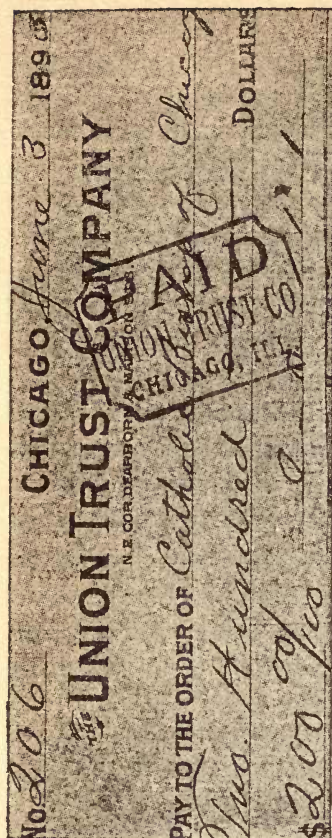 No 206 CHICAGO, June 3 189
THE UNION TRUST COMPANY
N.E. COR. DEARBORN & MADISON STS.
PAY TO THE ORDER OF Catholic Bishop of Chicago
Two Hundred DOLLARS
$200 00/100
PAID
UNION TRUST CO
CHICAGO, ILL.